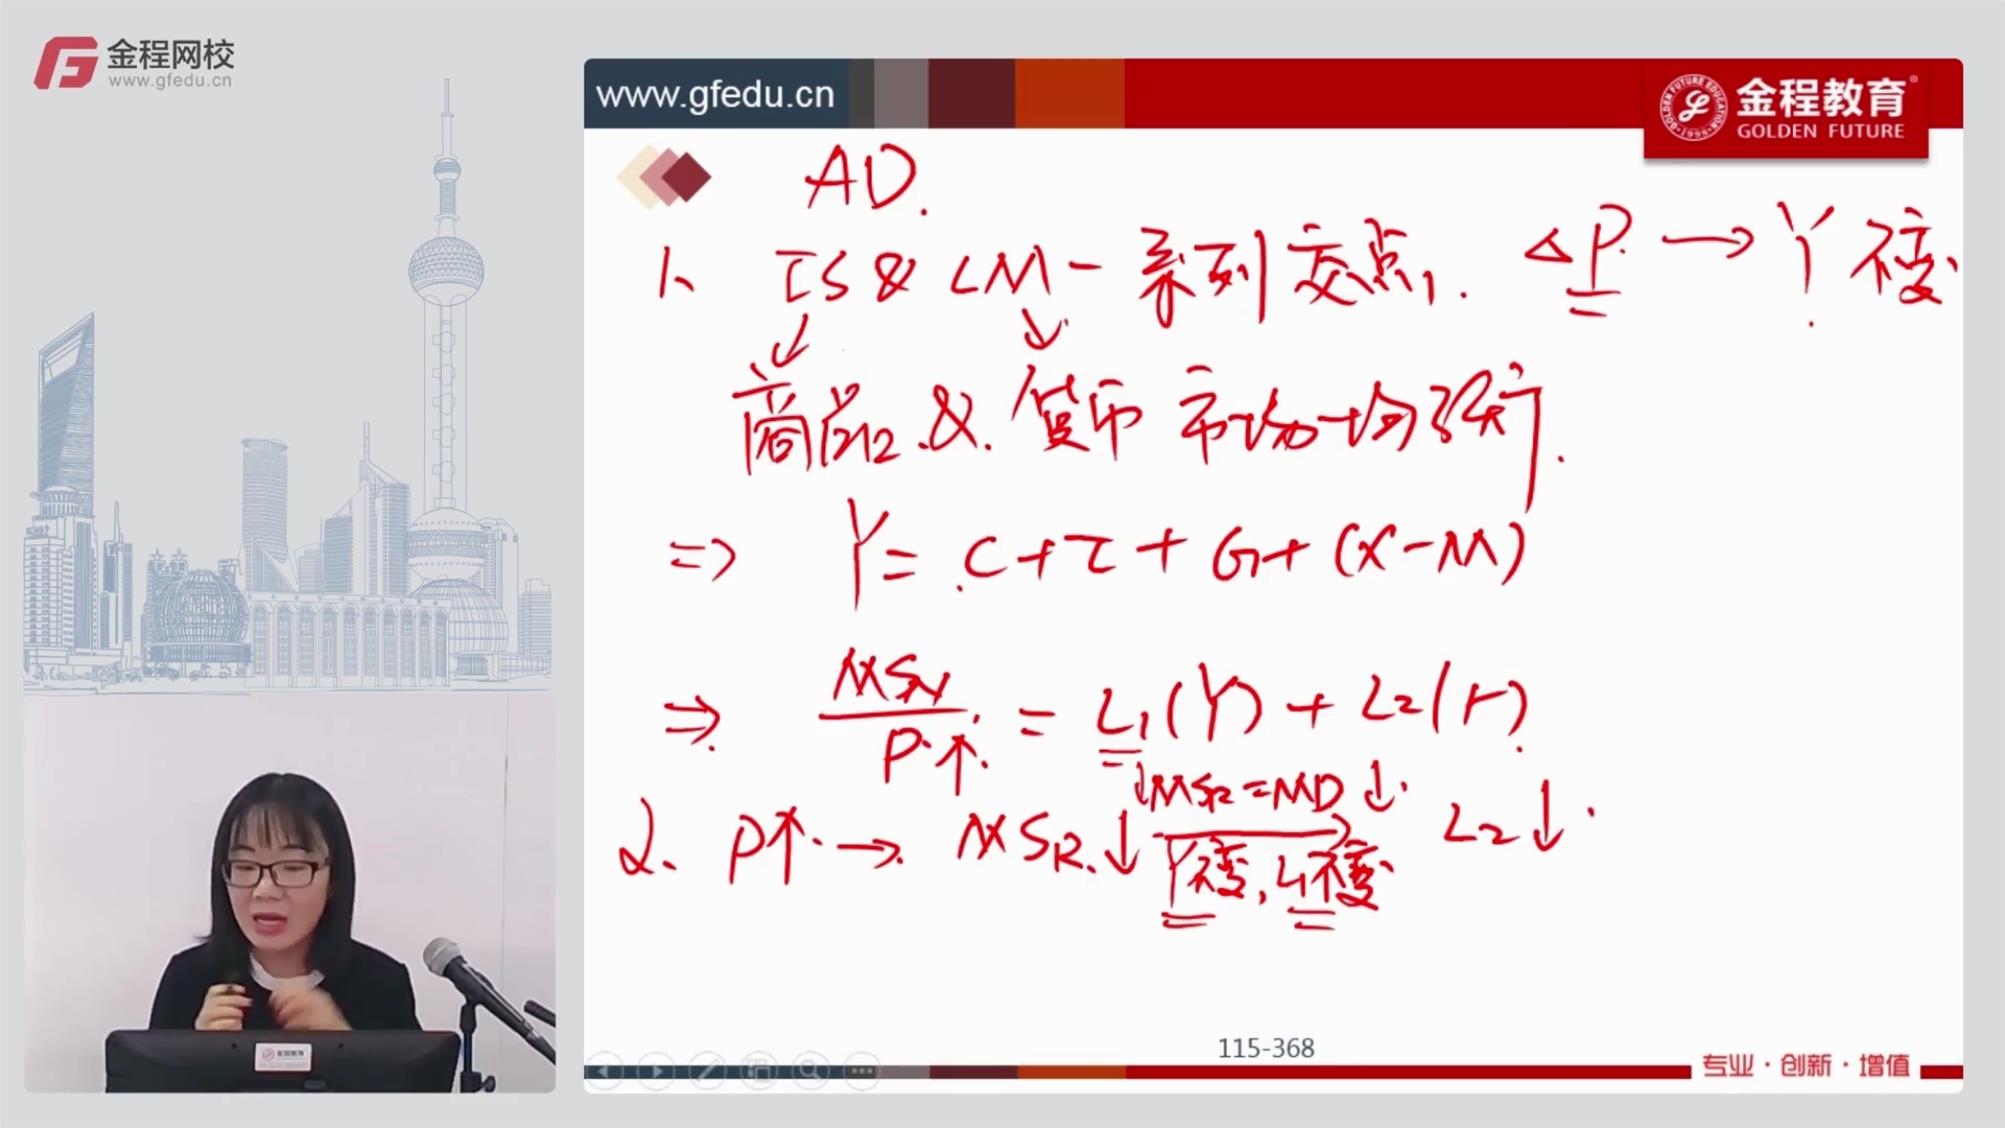 金程网校
www.gfedu.cn
www.gfedu.cn
金程教育
GOLDEN FUTURE
AD.
1、 IS & LM 一系列交点, . △P. → Y 不变.
商品 & 货币 市场均衡.
⇒ Y = C + I + G + (X - M)
⇒ MSN / P↑ = L1(Y) + L2(r)
↓MSR = MD↓
2. P↑ → MSR↓ → L2↓
Y不变, L1不变
115-368
专业·创新·增值